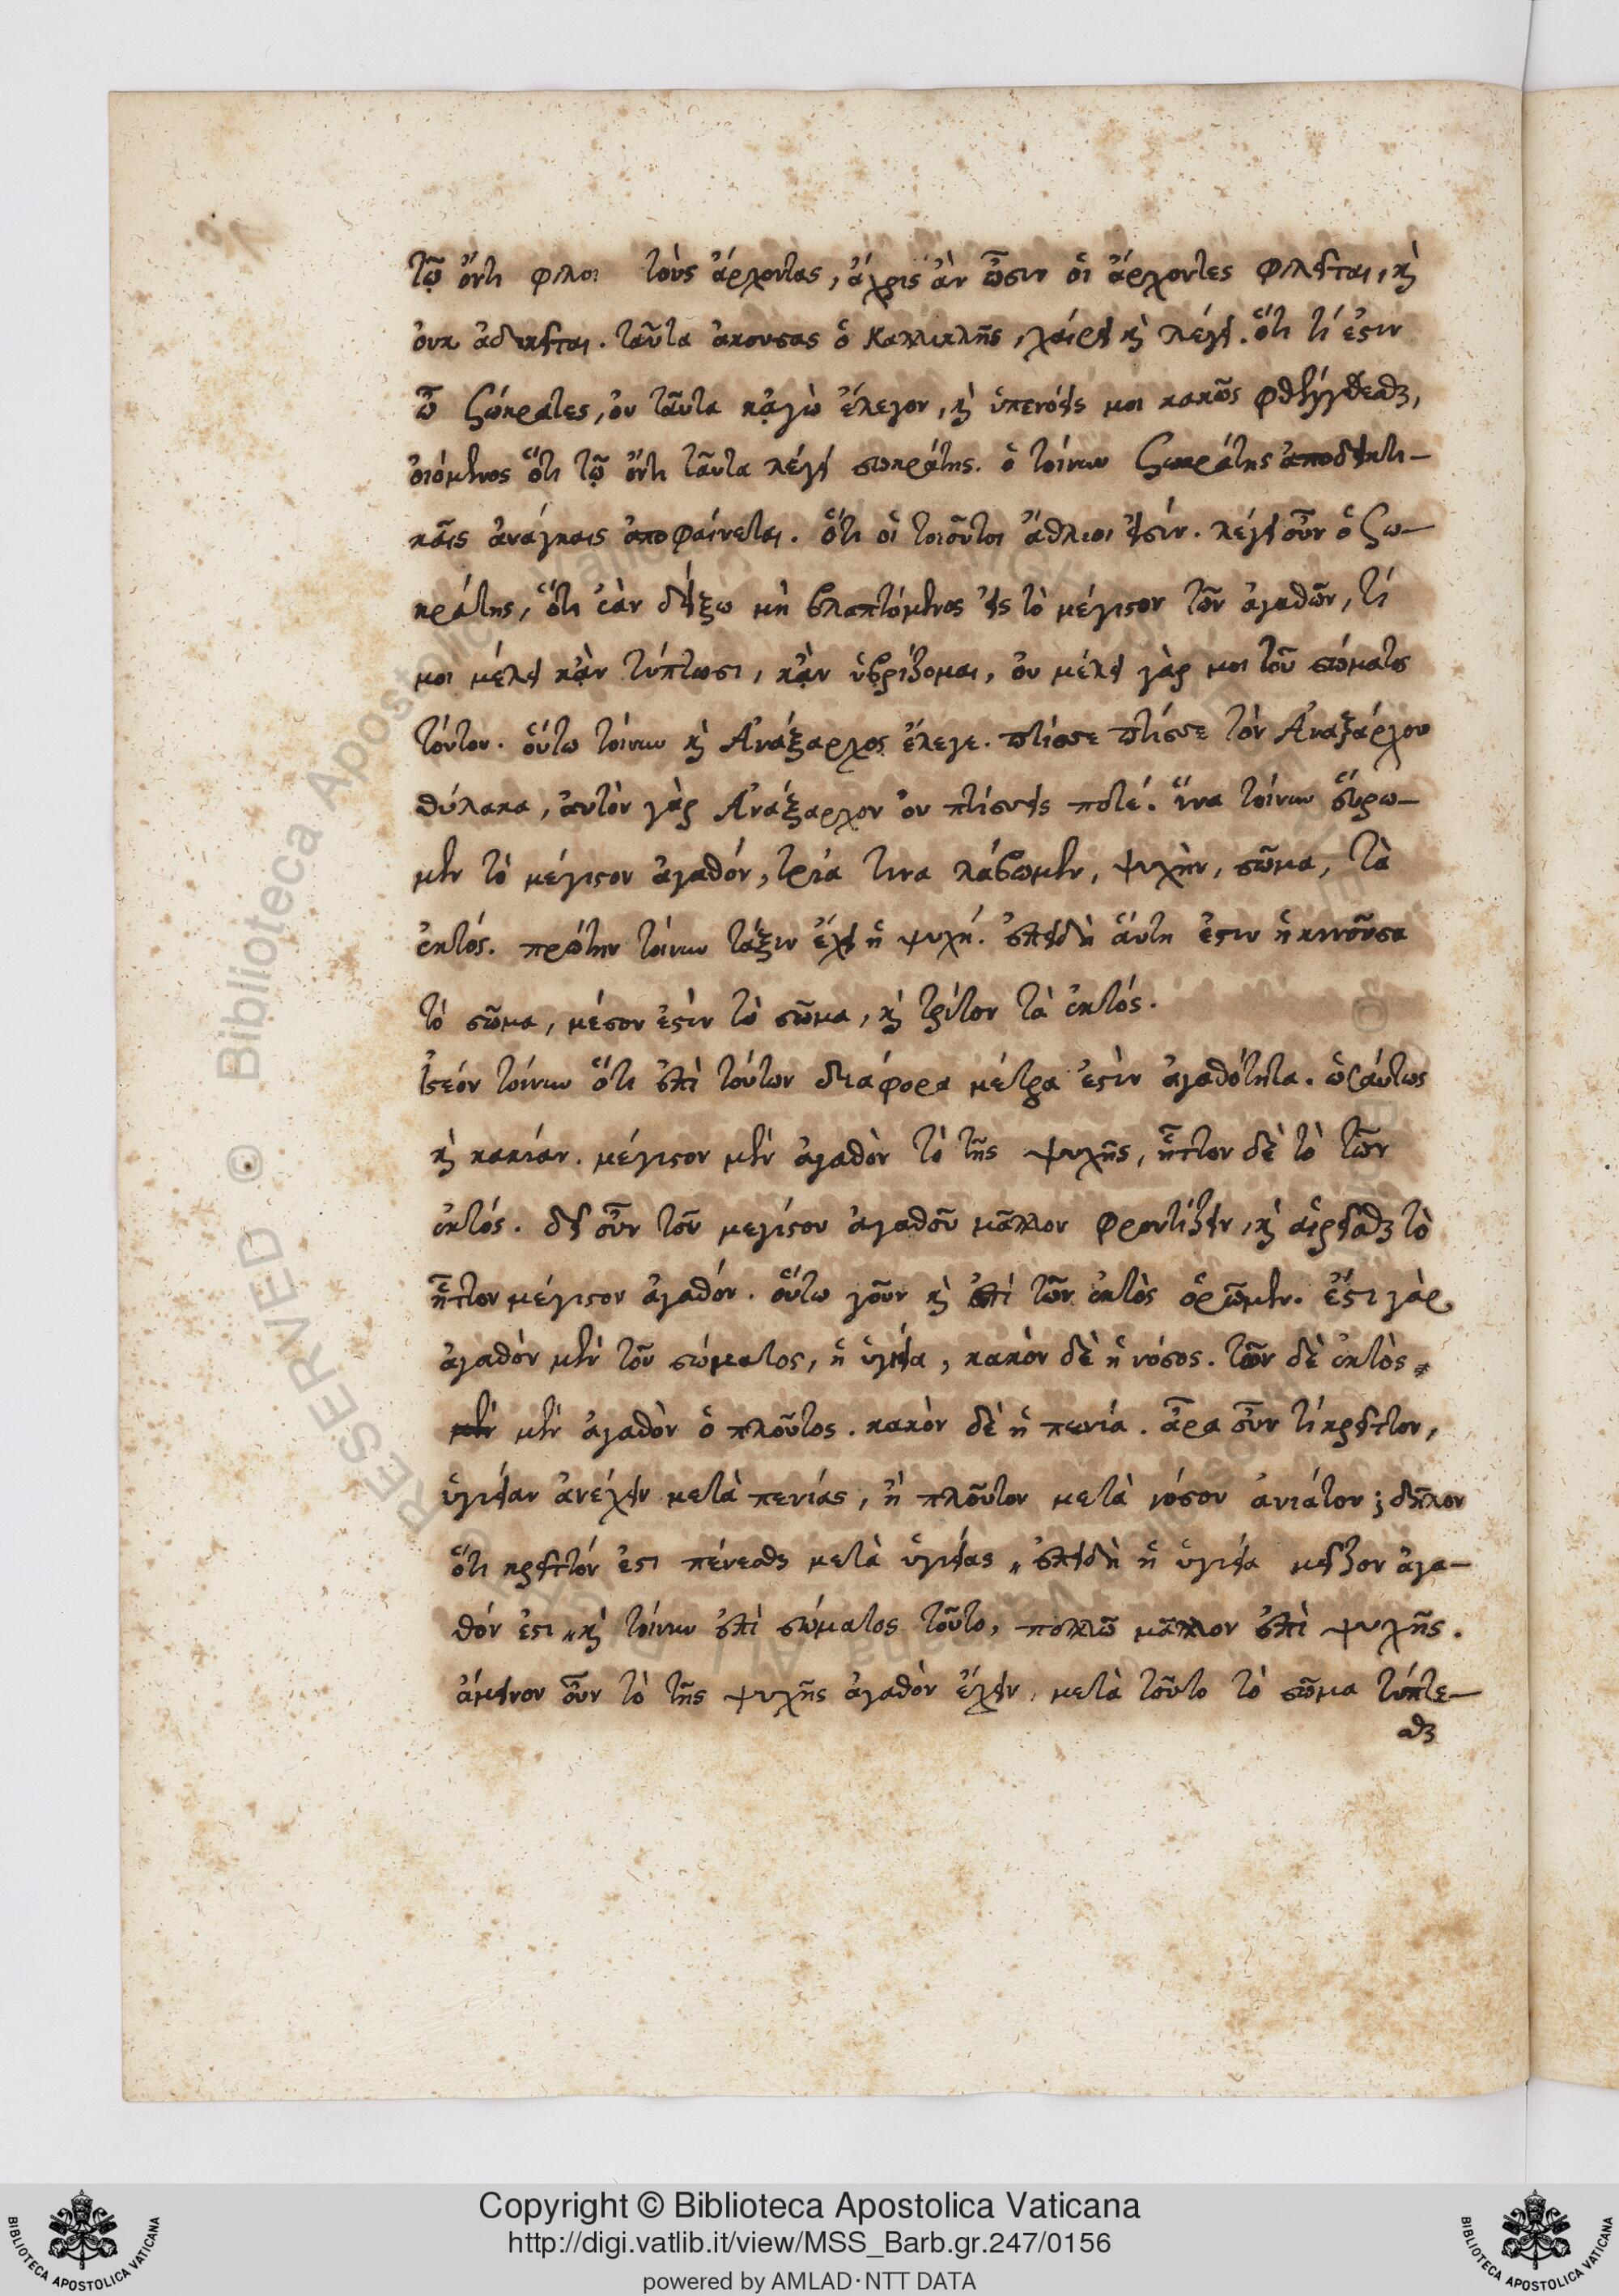 τῷ ὄντι φιλοι τοὺς ἄρχοντας, ἄχρις ἂν ὦσιν οἱ ἄρχοντες φιλεῖται, καὶ
οὐκ ἀδικεῖται. ταῦτα ἀκουσας ὁ Καλλικλῆς, χαίρει καὶ λέγει. ὅτι τί ἐστιν
ὦ Σώκρατες, οὐ ταῦτα κᾀγὼ ἔλεγον, καὶ ὑπενόεις μοι κακῶς φθέγγεσθαι,
οἰόμενος ὅτι τῷ ὄντι ταῦτα λέγει σωκράτης. ὁ τοίνυν Σωκράτης ἀποδεικτι-
καῖς ἀνάγκαις ἀποφαίνεται. ὅτι οἱ τοιοῦτοι ἄθλιοι εἰσίν. λέγει οὖν ὁ Σω-
κράτης, ὅτι ἐὰν δείξω μὴ βλαπτόμενος εἰς τὸ μέγιστον τῶν ἀγαθῶν, τί
μοι μέλει κᾂν τύπτωσι, κᾂν ὑβρίζομαι, οὐ μέλει γὰρ μοι τοῦ σώματος
τούτου. οὕτω τοίνυν καὶ Ἀνάξαρχος ἔλεγε. πτίσσε πτίσσε τὸν Ἀναξάρχου
θύλακα, αὐτὸν γὰρ Ἀνάξαρχον οὐ πτίσσεις ποτέ. ἵνα τοίνυν εὕρω-
μεν τὸ μέγιστον ἀγαθόν, τρία τινα λάβωμεν, ψυχὴν, σῶμα, τὰ
ἐκτός. πρώτην τοίνυν τάξιν ἔχει ἡ ψυχή. ἐπειδὴ αὕτη ἐστιν ἡ κινοῦσα
τὸ σῶμα, μέσον ἐστὶν τὸ σῶμα, καὶ τρίτον τὰ ἐκτός.
Ἰστέον τοίνυν ὅτι ἐπὶ τούτων διαφορα μέτρα ἐστὶν ἀγαθότητα. ὡσαύτως
καὶ κακίαν. μέγιστον μὲν ἀγαθὸν τὸ τῆς ψυχῆς, ἧττον δὲ τὸ τῶν
ἐκτός. δεῖ οὖν τοῦ μεγίστου ἀγαθοῦ μᾶλλον φροντίζειν, καὶ αἱρεῖσθαι τὸ
ἧττον μέγιστον ἀγαθόν. οὕτω γοῦν καὶ ἐπὶ τῶν ἐκτὸς ὁρῶμεν. ἔστι γὰρ
ἀγαθὸν μὲν τοῦ σώματος, ἡ ὑγιεία, κακὸν δὲ ἡ νόσος. τῶν δὲ ἐκτὸς
μὲν ἀγαθὸν ὁ πλοῦτος. κακὸν δὲ ἡ πενία. ἆρα οὖν τί κρεῖττον,
ὑγιείαν ἀνέχειν μετὰ πενίας, ἢ πλοῦτον μετὰ νόσου ἀνιάτου; δῆλον
ὅτι κρεῖττόν ἐστι πένεσθαι μετὰ ὑγιείας, ἐπειδὴ ἡ ὑγιεία μεῖζον ἀγα-
θόν ἐστι, καὶ τοίνυν ἐπὶ σώματος τοῦτο, πολλῶ μᾶλλον ἐπὶ ψυχῆς.
ἀμεινον οὖν τὸ τῆς ψυχῆς ἀγαθὸν ἔχειν, μετὰ τοῦτο τὸ σῶμα τύπτε-
σθαι
Copyright © Biblioteca Apostolica Vaticana
http://digi.vatlib.it/view/MSS_Barb.gr.247/0156
powered by AMLAD·NTT DATA
BIBLIOTECA APOSTOLICA VATICANA
BIBLIOTECA APOSTOLICA VATICANA